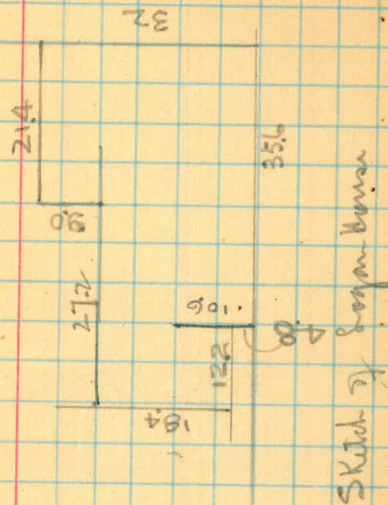 32
21.4
8.0
27.2
35.6
10.6
12.2
18.4
Sketch of Logan House